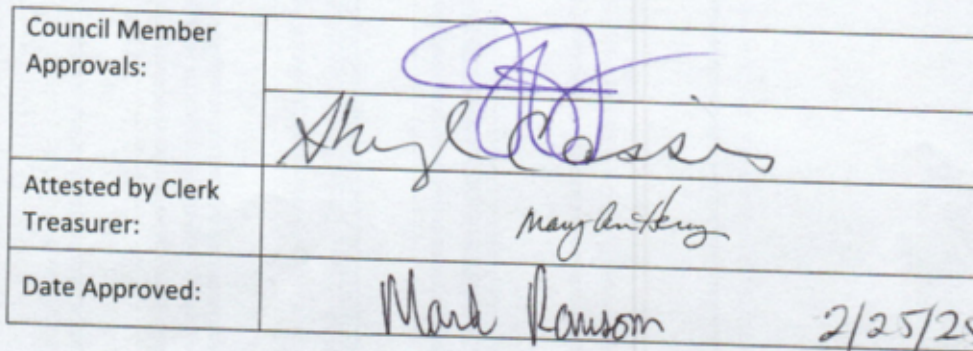 Council Member
Approvals:
Sheryl Cassis
Attested by Clerk
Treasurer:
Date Approved:
Mark Ransom 2/25/2